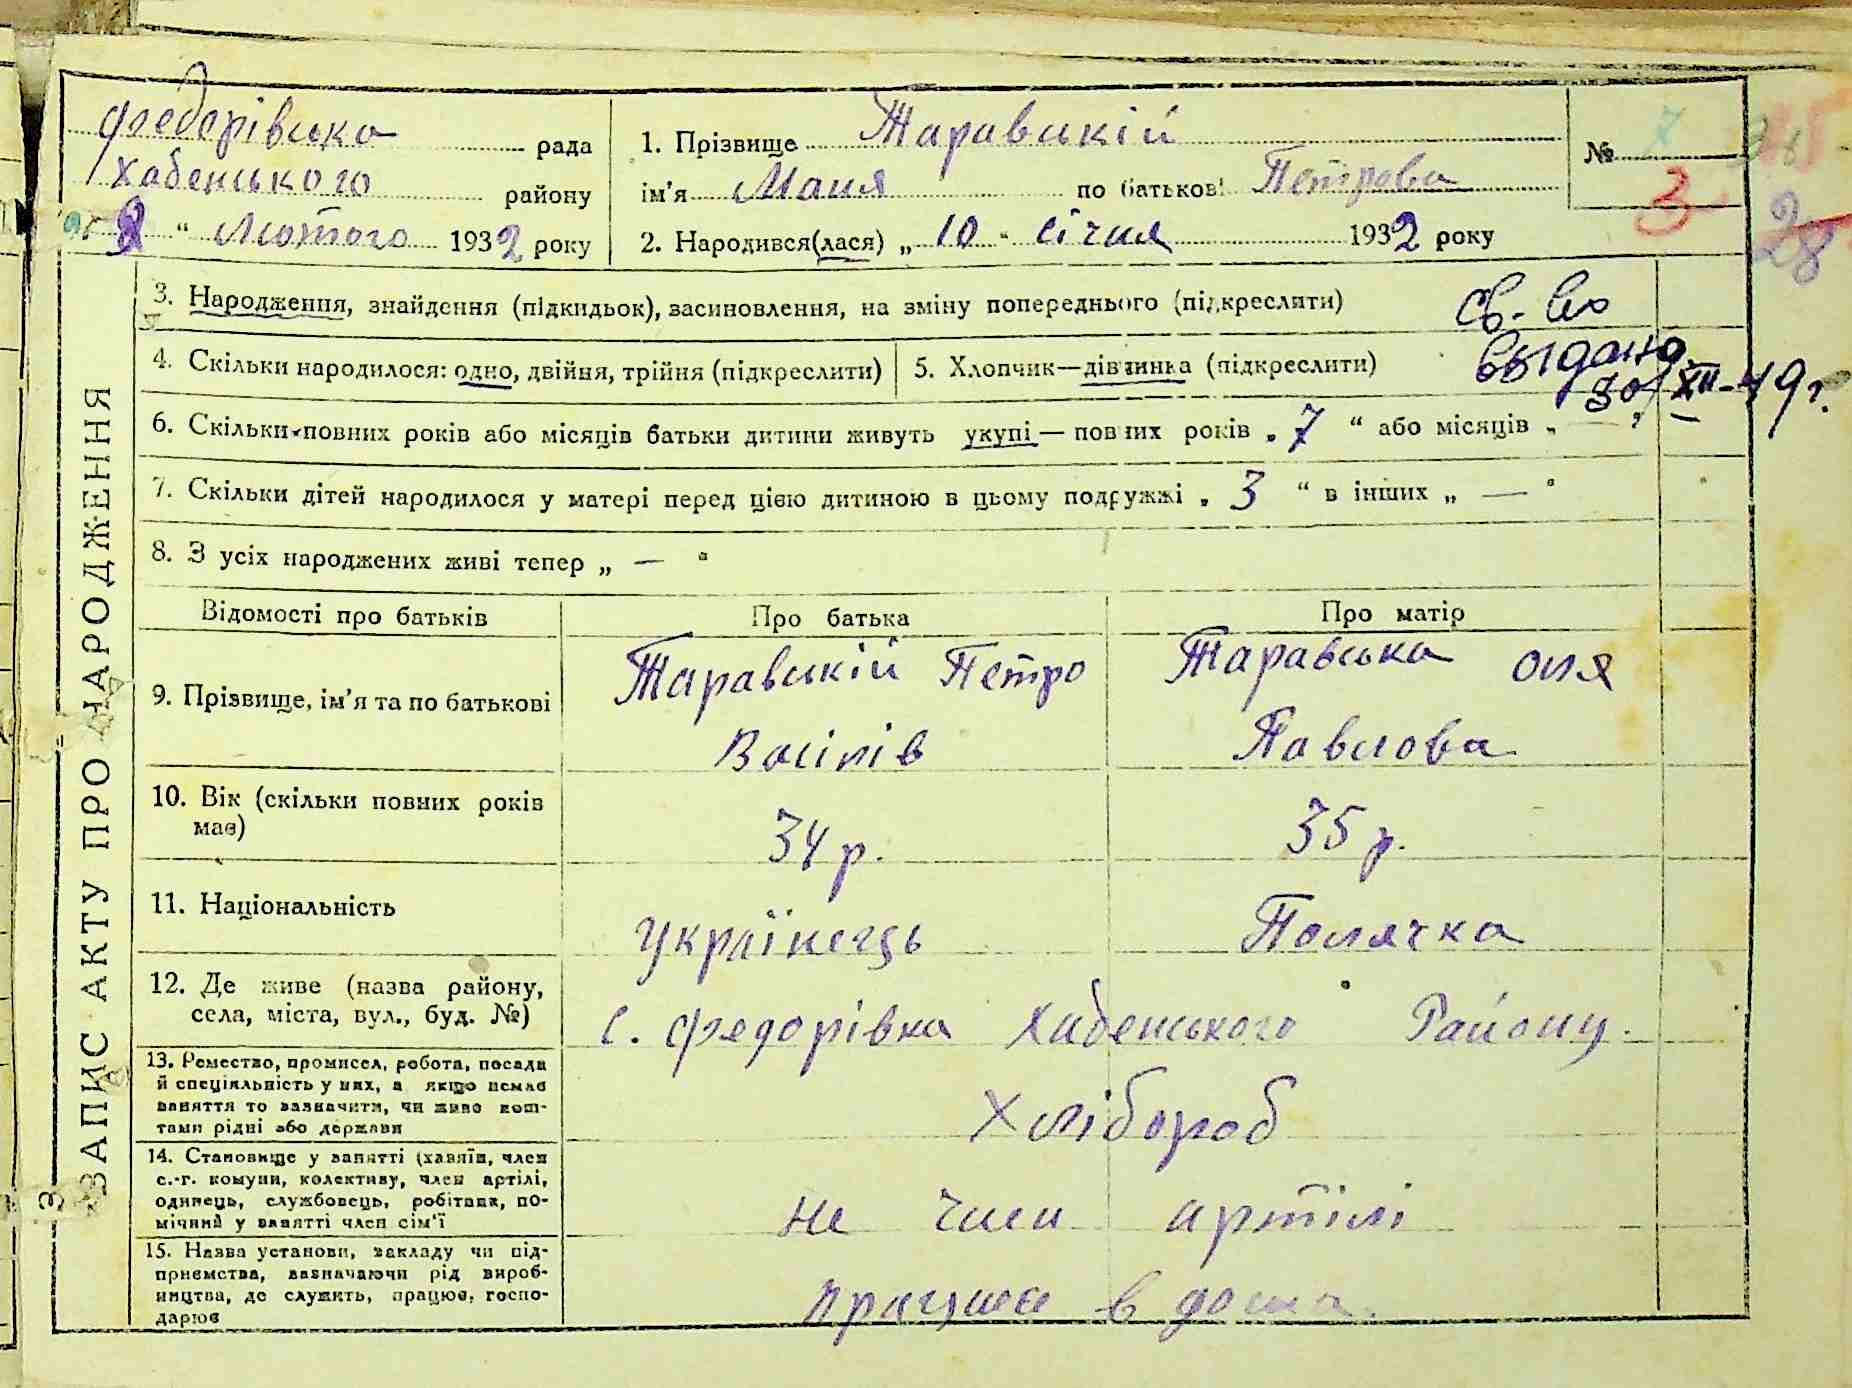 Федорівська рада
Хабенського району
" Лютого 1932 року
1. Прізвище Таравський
ім'я Маня по батькові Петрова
2. Народився(лася) „ 10 " січня 1932 року
№ 7
3
28
3. Народження, знайдення (підкидьок), засиновлення, на зміну попереднього (підкреслити)
Св-во
4. Скільки народилося: одно, двійня, трійня (підкреслити)
5. Хлопчик—дівчинка (підкреслити)
выдано
30/XII-49г.
6. Скільки повних років або місяців батьки дитини живуть укупі — повних років „ 7 “ або місяців „ — "
7. Скільки дітей народилося у матері перед цією дитиною в цьому подружжі „ 3 “ в інших „ — "
8. З усіх народжених живі тепер „ — "
ЗАПИС АКТУ ПРО НАРОДЖЕННЯ
З
Відомості про батьків
Про батька
Про матір
9. Прізвище, ім'я та по батькові
Таравський Петро
Васілів
Таравська Оля
Павлова
10. Вік (скільки повних років
має)
34 р.
35 р.
11. Національність
Українець
Полячка
12. Де живе (назва району,
села, міста, вул., буд. №)
с. Федорівка Хабенського Району.
13. Ремество, промисел, робота, посада
й спеціяльність у них, а якщо немає
заняття то зазначити, чи живе кош-
тами рідні або держави
Хлібороб
14. Становище у занятті (хазяїн, член
с.-г. комуни, колективу, член артілі,
одинець, службовець, робітник, по-
мічний у занятті член сім'ї
не член артілі
15. Назва установи, закладу чи під-
приємства, зазначаючи рід вироб-
ництва, де служить, працює, госпо-
дарює
працює в дома.